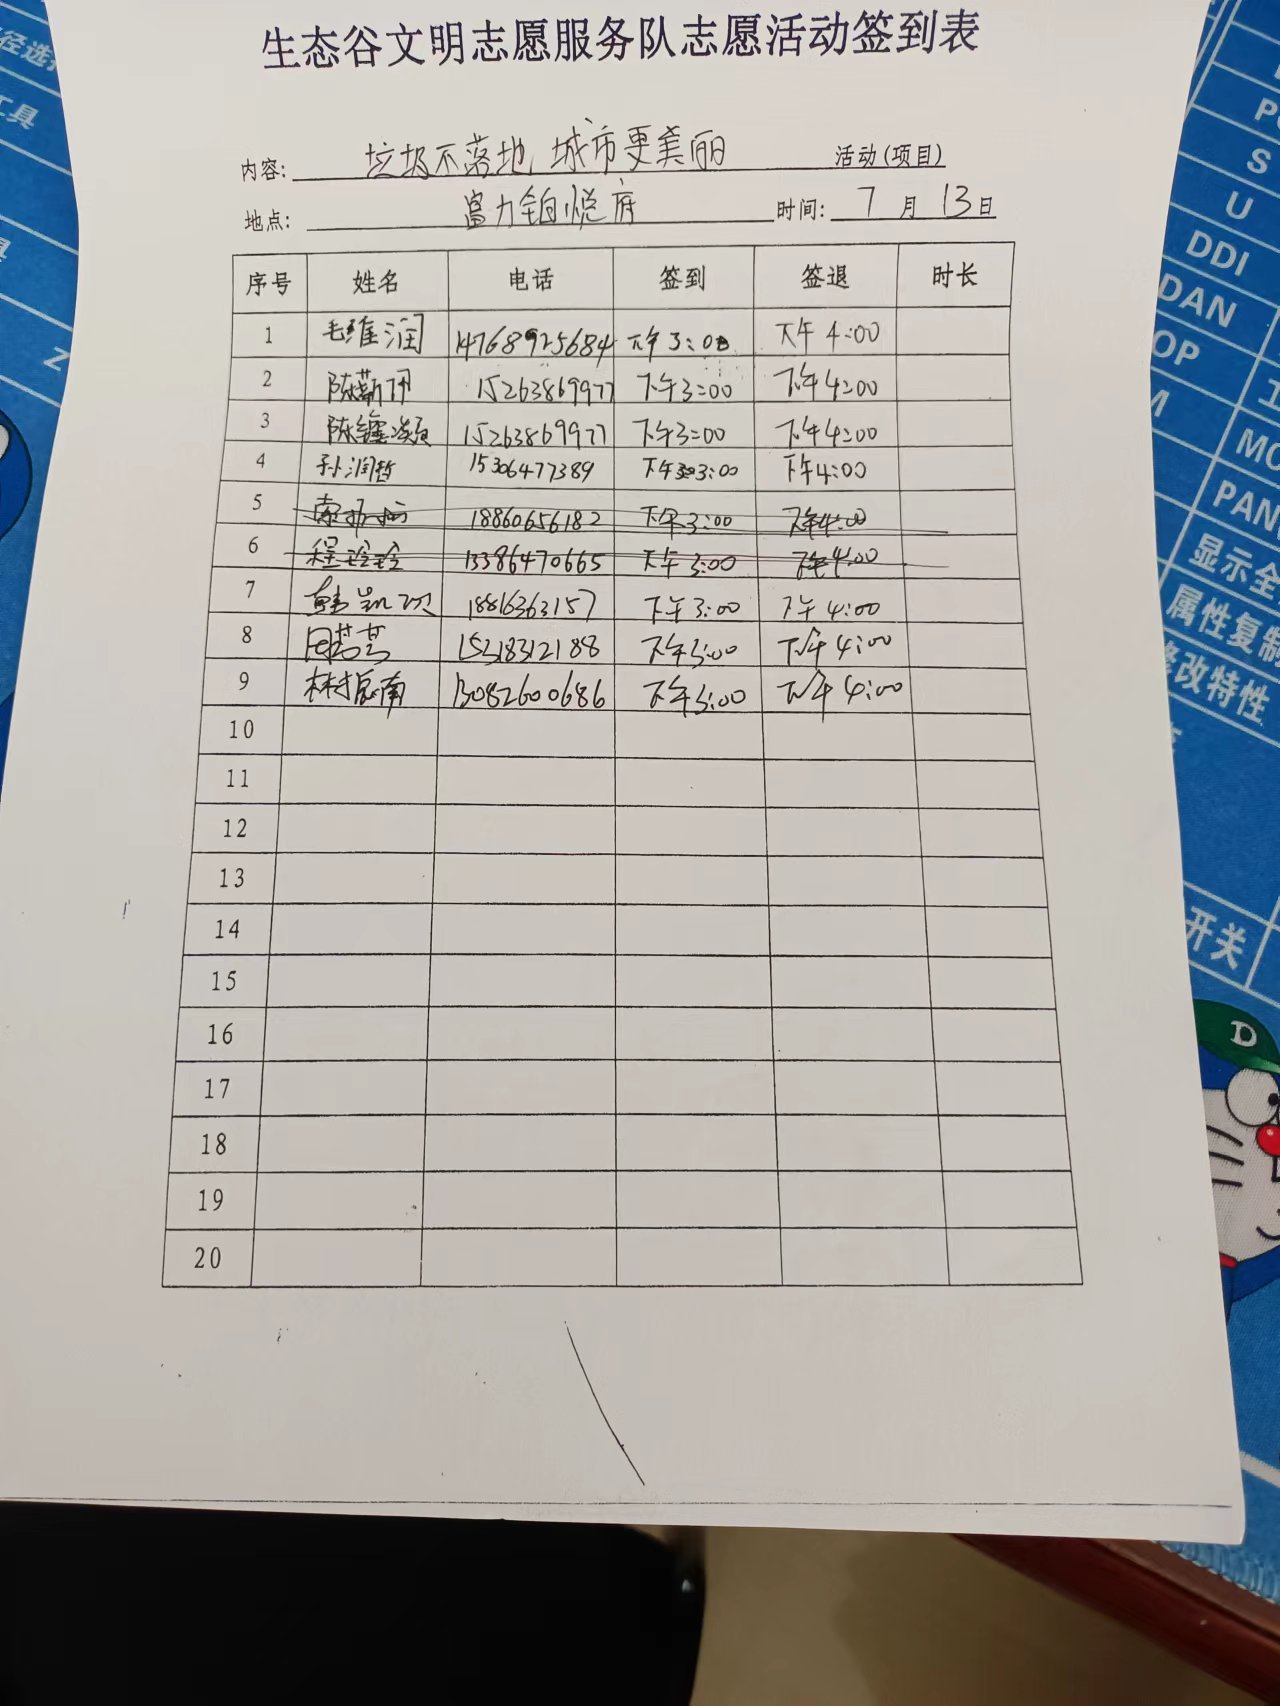 生态谷文明志愿服务队志愿活动签到表
内容: 垃圾不落地 城市更美丽 活动(项目)
地点: 富力铂悦府 时间: 7月13日
序号 姓名 电话 签到 签退 时长
1 毛维润 14768925684 下午3:00 下午4:00
2 陈 15263869977 下午3:00 下午4:00
3 陈 15263869977 下午3:00 下午4:00
4 孙润哲 15306477389 下午3:00 下午4:00
5 18860656182 下午3:00 下午4:00
6 程玲玲 13386470665 下午3:00 下午4:00
7 韩凯 18816363157 下午3:00 下午4:00
8 15318312188 下午3:00 下午4:00
9 林振南 13082600686 下午3:00 下午4:00
10
11
12
13
14
15
16
17
18
19
20
径选
工具
Z
S
U
DDI
DAN
OP
M
MO
PAN
显示全
属性复制
修改特性
开关
D